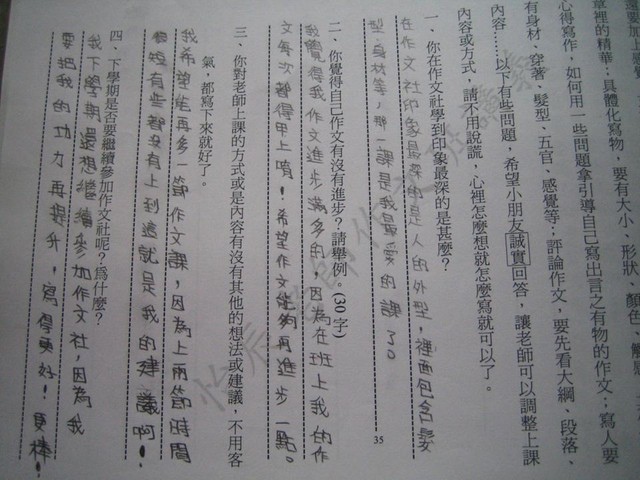 章裡的精華；具體化寫物，要有大小、形狀、顏色、
心得寫作，如何用一些問題拿引導自己寫出言之有物的作文；寫人要
有身材、穿著、髮型、五官、感覺等；評論作文，要先看大綱、段落、
內容……以下有些問題，希望小朋友誠實回答，讓老師可以調整上課
內容或方式，請不用說謊，心裡怎麼想就怎麼寫就可以了。
一、你在作文社學到印象最深的是甚麼？
在作文社印象最深的是人的外型，裡面包含髮
型、身材等，那一課是我最愛的課了。
35
二、你覺得自己作文有沒有進步？請舉例。(30字)
我覺得我作文進步滿多的，因為在班上我的作
文每次都得甲上唷！希望作文能夠再進步一點。
三、你對老師上課的方式或是內容有沒有其他的想法或建議，不用客
氣，都寫下來就好了。
我希望能再多一節作文課，因為上兩節時間
有些都沒有上到這就是我的建議啊！
四、下學期是否要繼續參加作文社呢？為什麼？
我下學期還想繼續參加作文社，因為我
要把我的功力再提升，寫得更好！更棒！